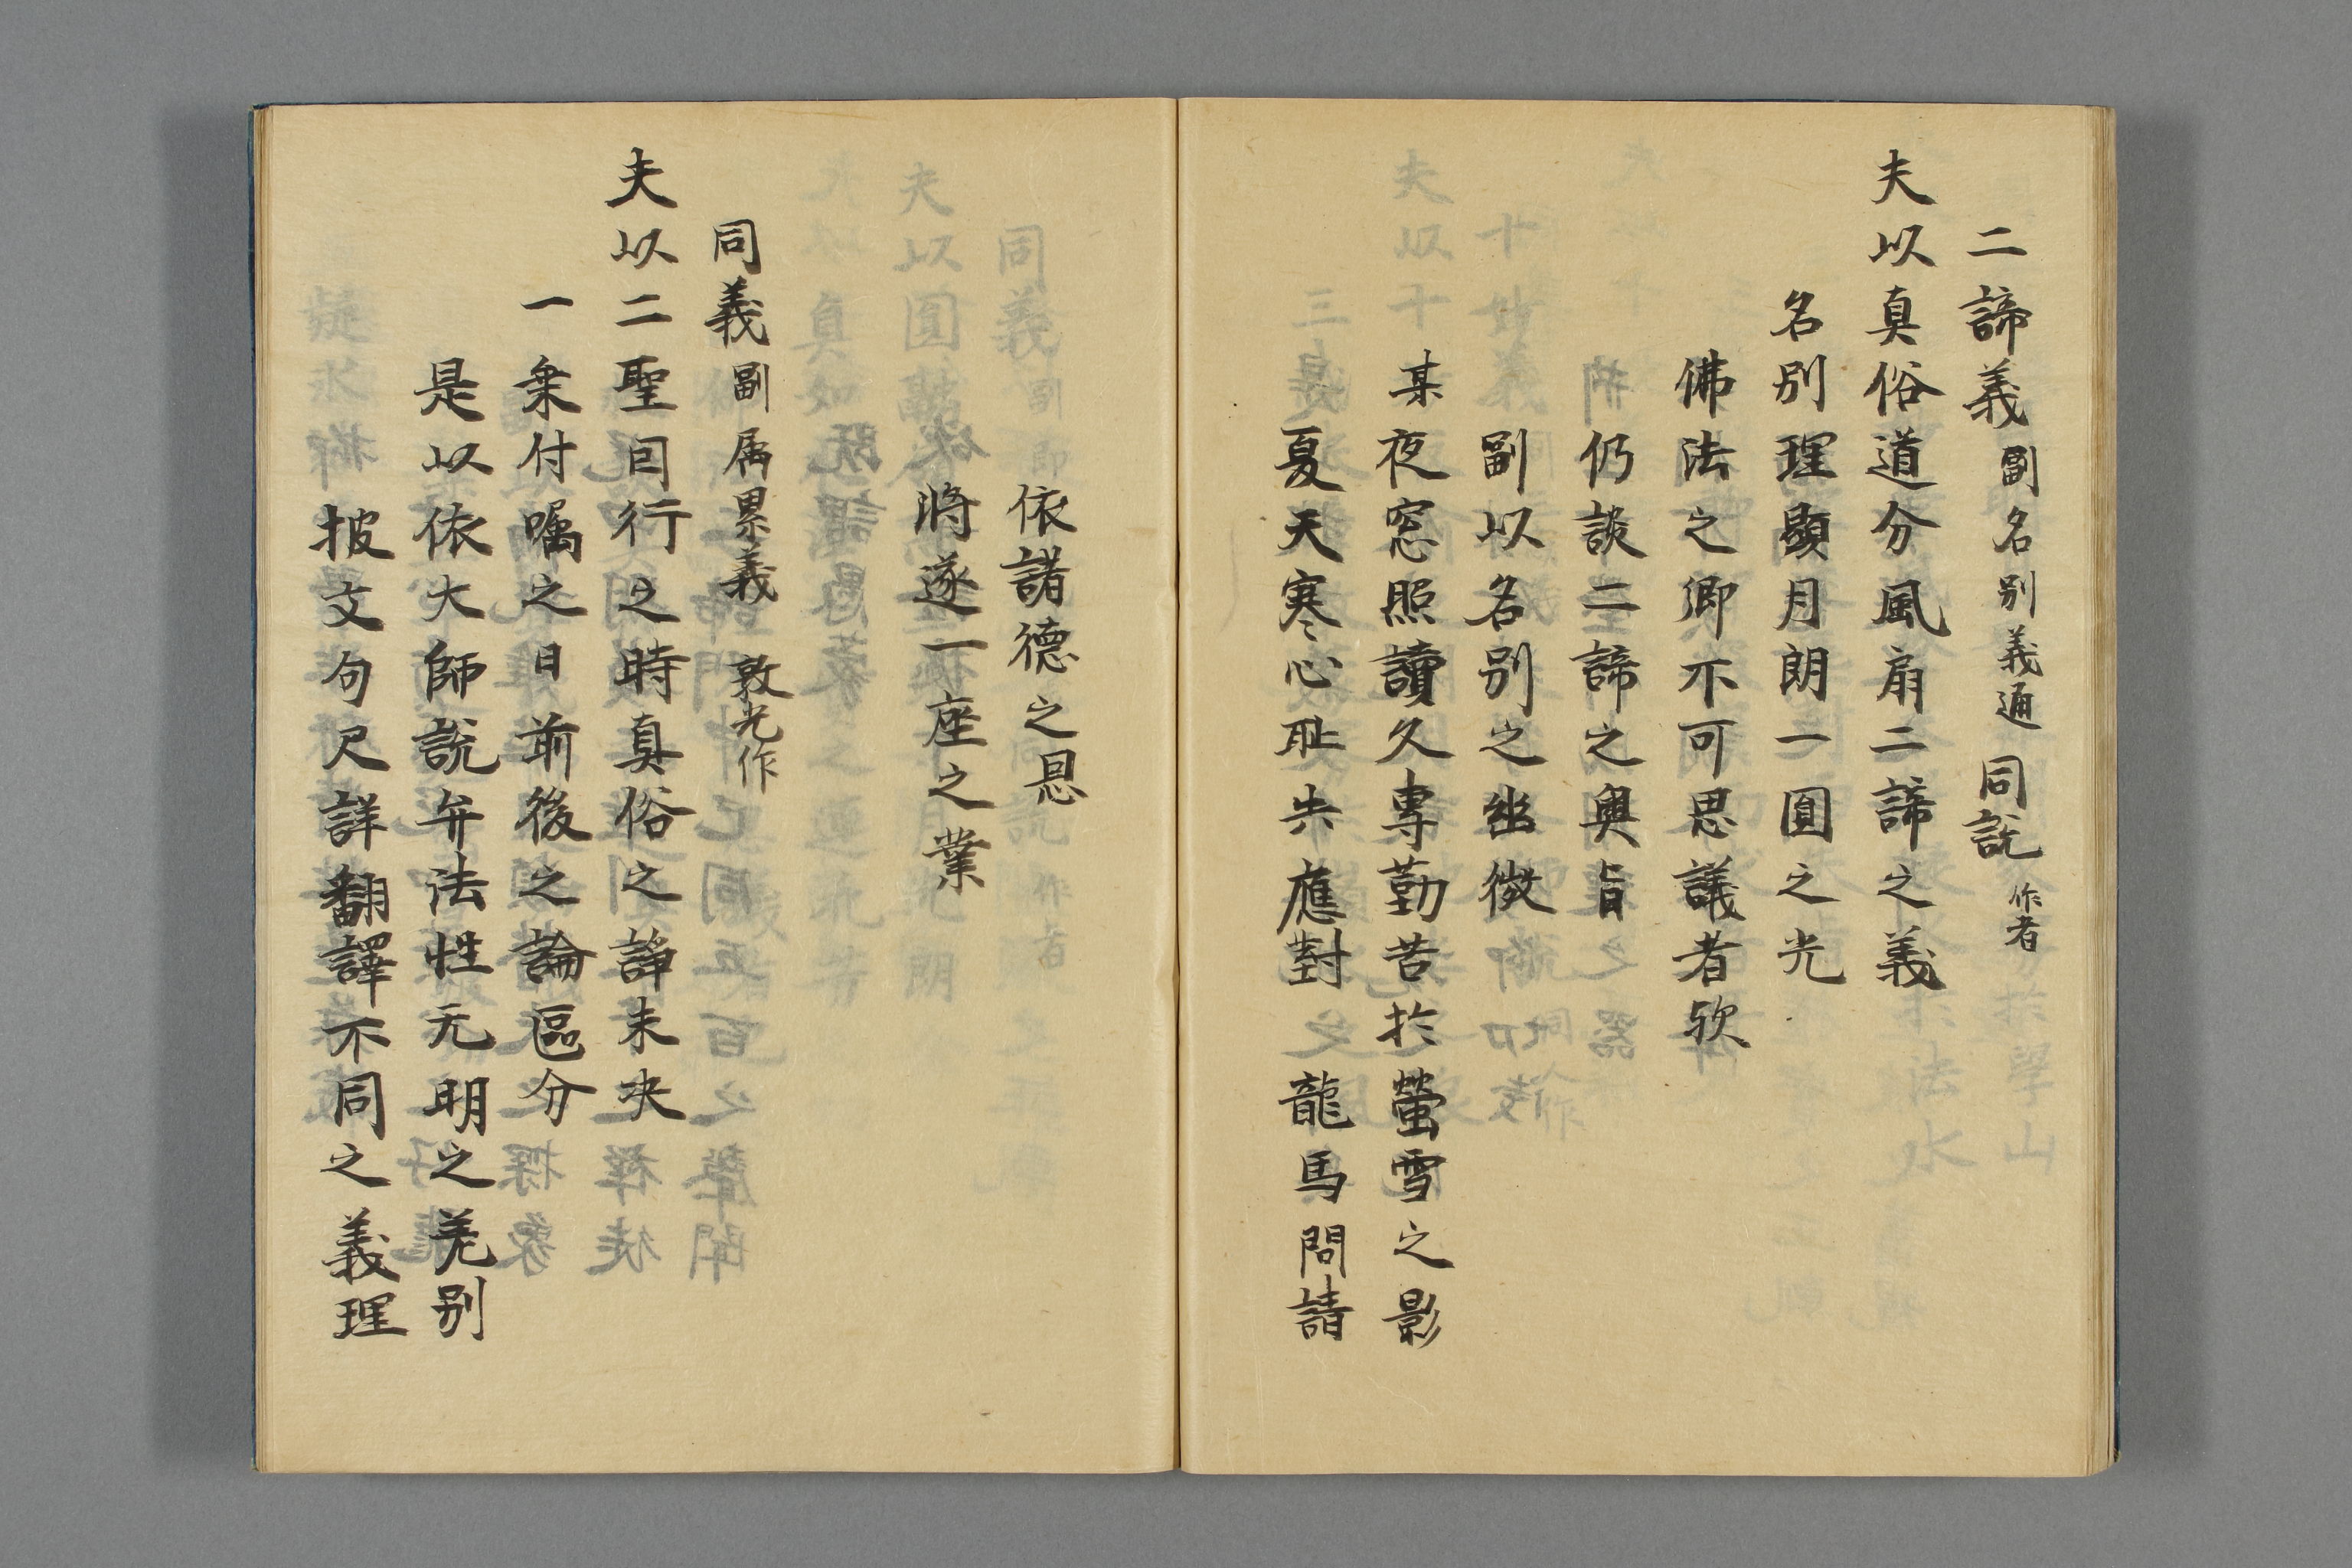 二諦義副名別義通 同説 作者
夫以真俗道分風扇二諦之義
名別理顕月朗一圓之光
佛法之郷不可思議者欤
仍談二諦之奥旨
副以名別之幽微
某夜窓照讀久專勤苦於螢雪之影
夏天寒心耻共應對之龍馬問請
依諸德之恩
將遂一座之業
同義副属累義 敦光作
夫以二聖因行之時真俗之諍未决
一乗付嘱之日前後之論區分
是以依大師説弁法性无明之差別
披文句尺詳翻譯不同之義理